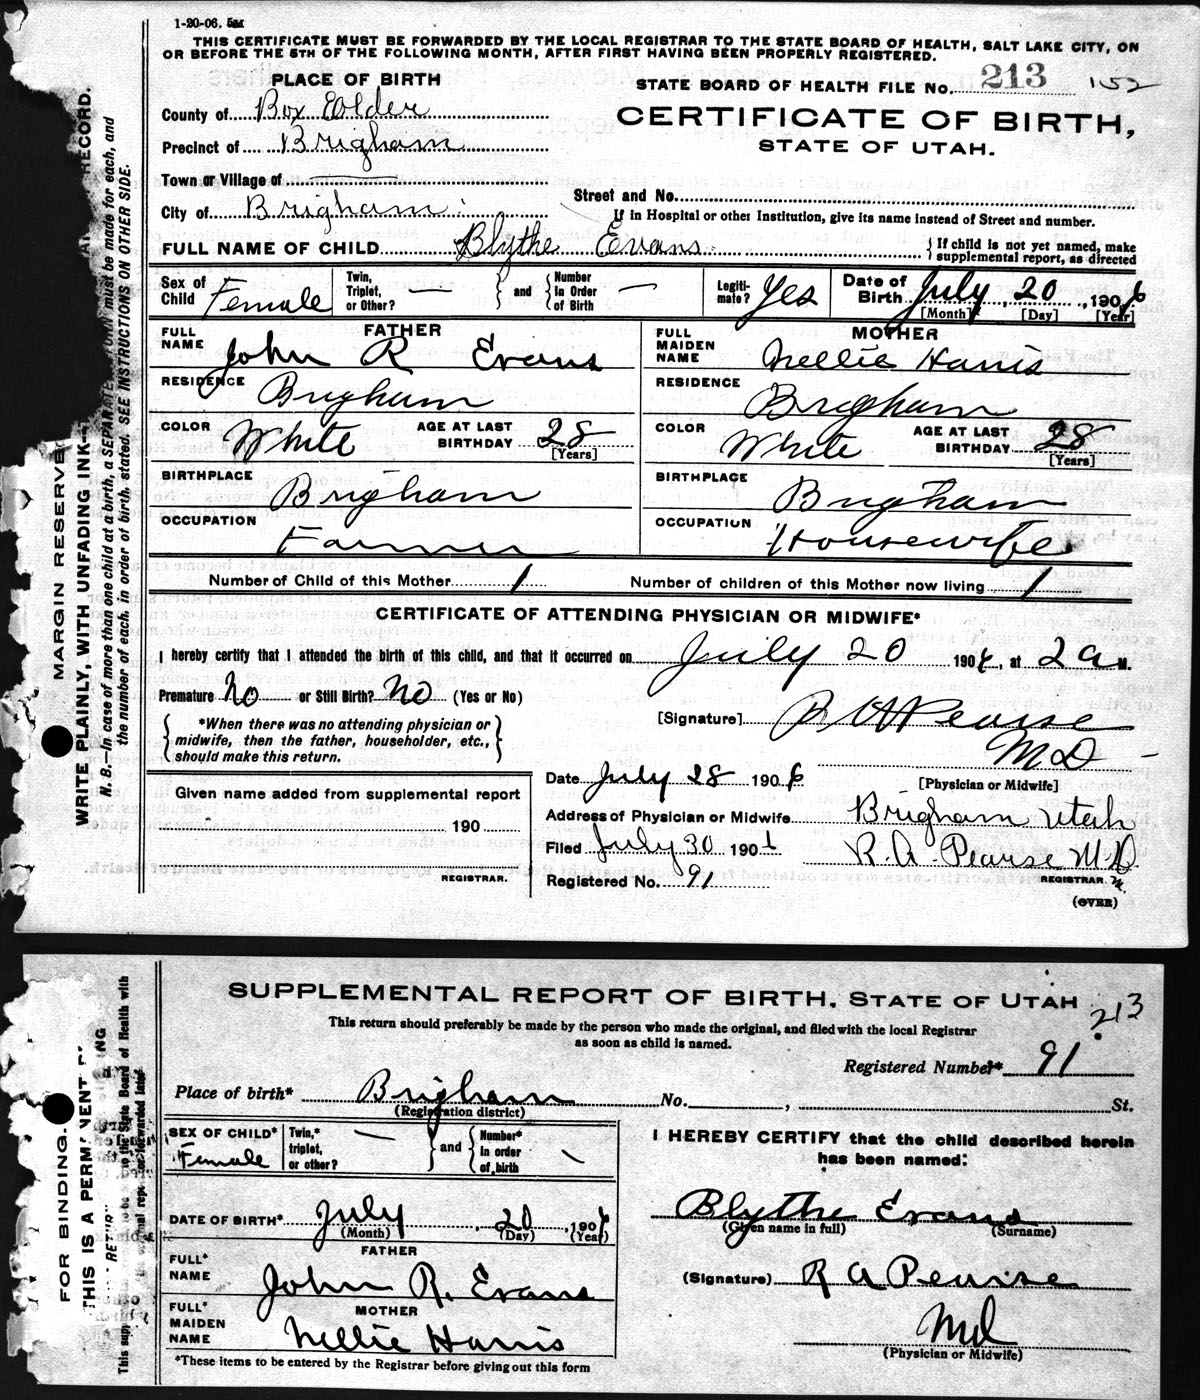 1-20-06. 5M
THIS CERTIFICATE MUST BE FORWARDED BY THE LOCAL REGISTRAR TO THE STATE BOARD OF HEALTH, SALT LAKE CITY, ON
OR BEFORE THE 5TH OF THE FOLLOWING MONTH, AFTER FIRST HAVING BEEN PROPERLY REGISTERED.
PLACE OF BIRTH
STATE BOARD OF HEALTH FILE NO. 213 152
County of Box Elder
CERTIFICATE OF BIRTH,
Precinct of Brigham
STATE OF UTAH.
Town or Village of
Street and No.
City of Brigham
If in Hospital or other Institution, give its name instead of Street and number.
FULL NAME OF CHILD Blythe Evans { If child is not yet named, make supplemental report, as directed
Sex of Child Female Twin, Triplet, or Other? — } and { Number in Order of Birth — Legitimate? Yes Date of Birth July 20, 1906
[Month] [Day] [Year]
FATHER MOTHER
FULL NAME John R Evans FULL MAIDEN NAME Nellie Harris
RESIDENCE Brigham RESIDENCE Brigham
COLOR White AGE AT LAST BIRTHDAY 28 [Years] COLOR White AGE AT LAST BIRTHDAY 28 [Years]
BIRTHPLACE Brigham BIRTHPLACE Brigham
OCCUPATION Farmer OCCUPATION Housewife
Number of Child of this Mother 1 Number of children of this Mother now living 1
CERTIFICATE OF ATTENDING PHYSICIAN OR MIDWIFE*
I hereby certify that I attended the birth of this child, and that it occurred on July 20 1906, at 2 a M.
Premature No or Still Birth? No (Yes or No)
[Signature] Pearse
MD
{ *When there was no attending physician or midwife, then the father, householder, etc., should make this return. }
Date July 28 1906 [Physician or Midwife]
Given name added from supplemental report
190
REGISTRAR.
Address of Physician or Midwife Brigham Utah
Filed July 30 190 R. A. Pearse M.D.
Registered No. 91 REGISTRAR.
(OVER)
MARGIN RESERVE
WRITE PLAINLY, WITH UNFADING INK— RECORD.
N. B.—In case of more than one child at a birth, a SEPARATE must be made for each, and
the number of each, in order of birth, stated. SEE INSTRUCTIONS ON OTHER SIDE.
SUPPLEMENTAL REPORT OF BIRTH, STATE OF UTAH 213
This return should preferably be made by the person who made the original, and filed with the local Registrar
as soon as child is named.
Registered Number* 91
Place of birth* Brigham No. , St.
(Registration district)
SEX OF CHILD* Female Twin,* triplet, or other? — } and { Number* in order of birth
I HEREBY CERTIFY that the child described herein
has been named:
Blythe Evans
(Given name in full) (Surname)
DATE OF BIRTH* July, 20, 1906
(Month) (Day) (Year)
FATHER
FULL* NAME John R. Evans
(Signature) R A Pearse
MOTHER
FULL* MAIDEN NAME Nellie Harris
MD
(Physician or Midwife)
*These items to be entered by the Registrar before giving out this form
FOR BINDING.
THIS IS A PERMANENT